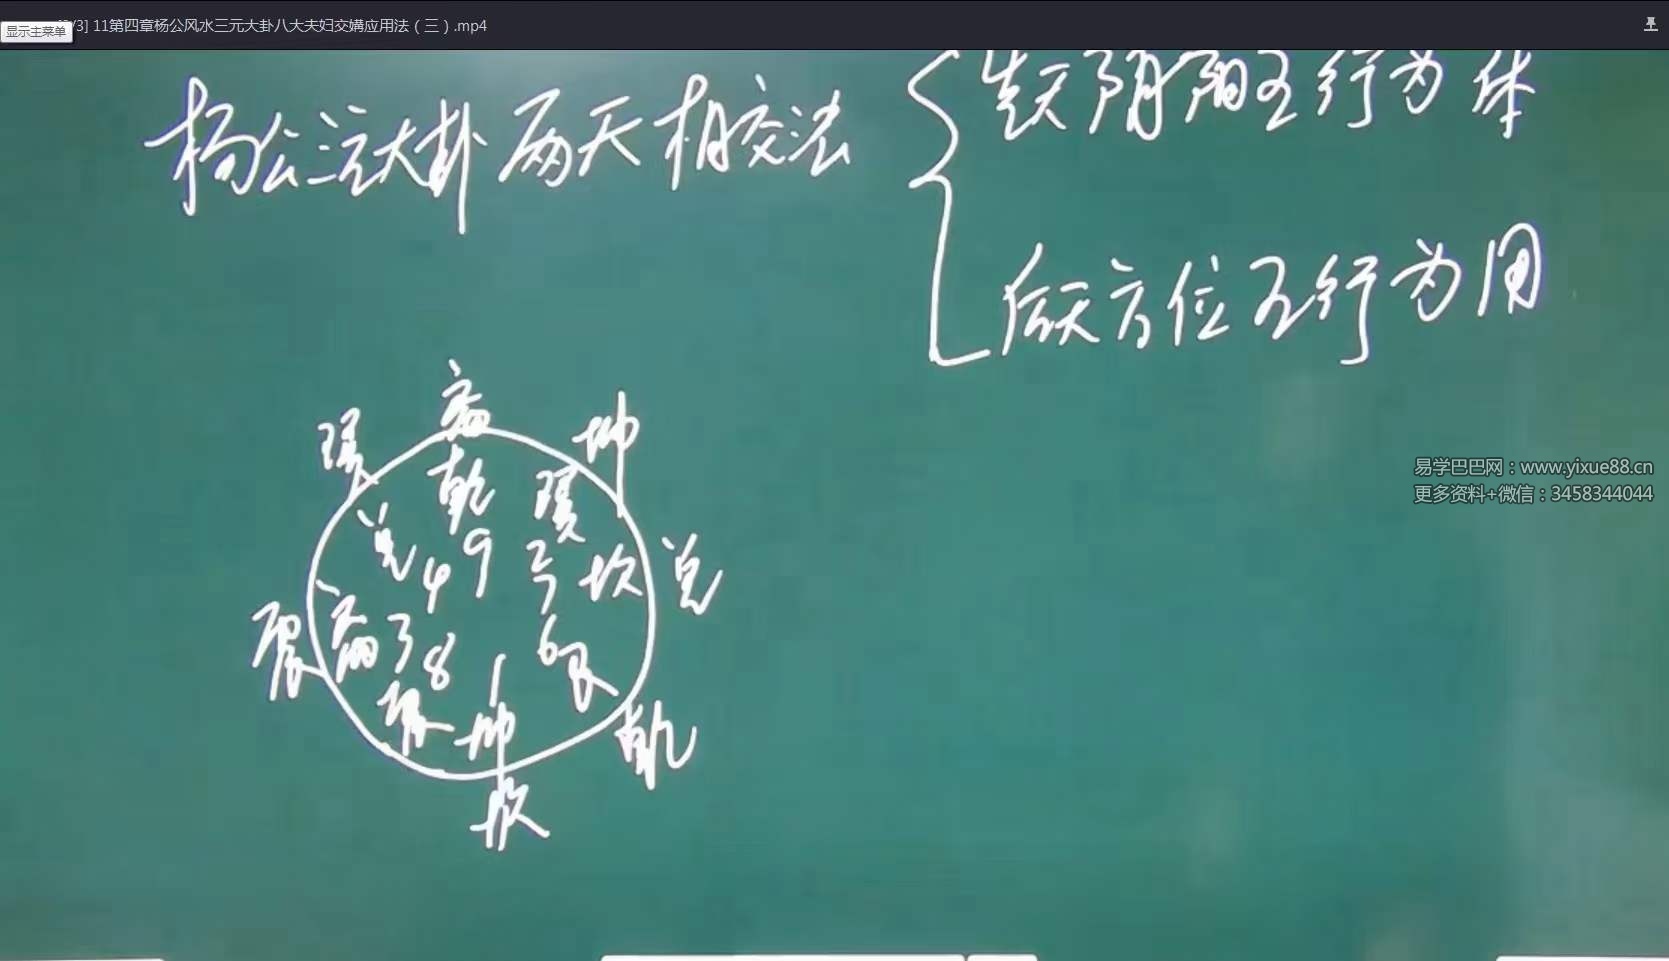 显示主菜单
/3] 11第四章杨公风水三元大卦八大夫妇交媾应用法（三）.mp4
杨公三元大卦两天相交法
先天阴阳五行为体
后天方位五行为用
离
巽 坤
乾 巽
兑 9 2
4 7 坎 兑
震 离 3
8 6 艮
震 1
坤 乾
坎
易学巴巴网：www.yixue88.cn
更多资料+微信：3458344044